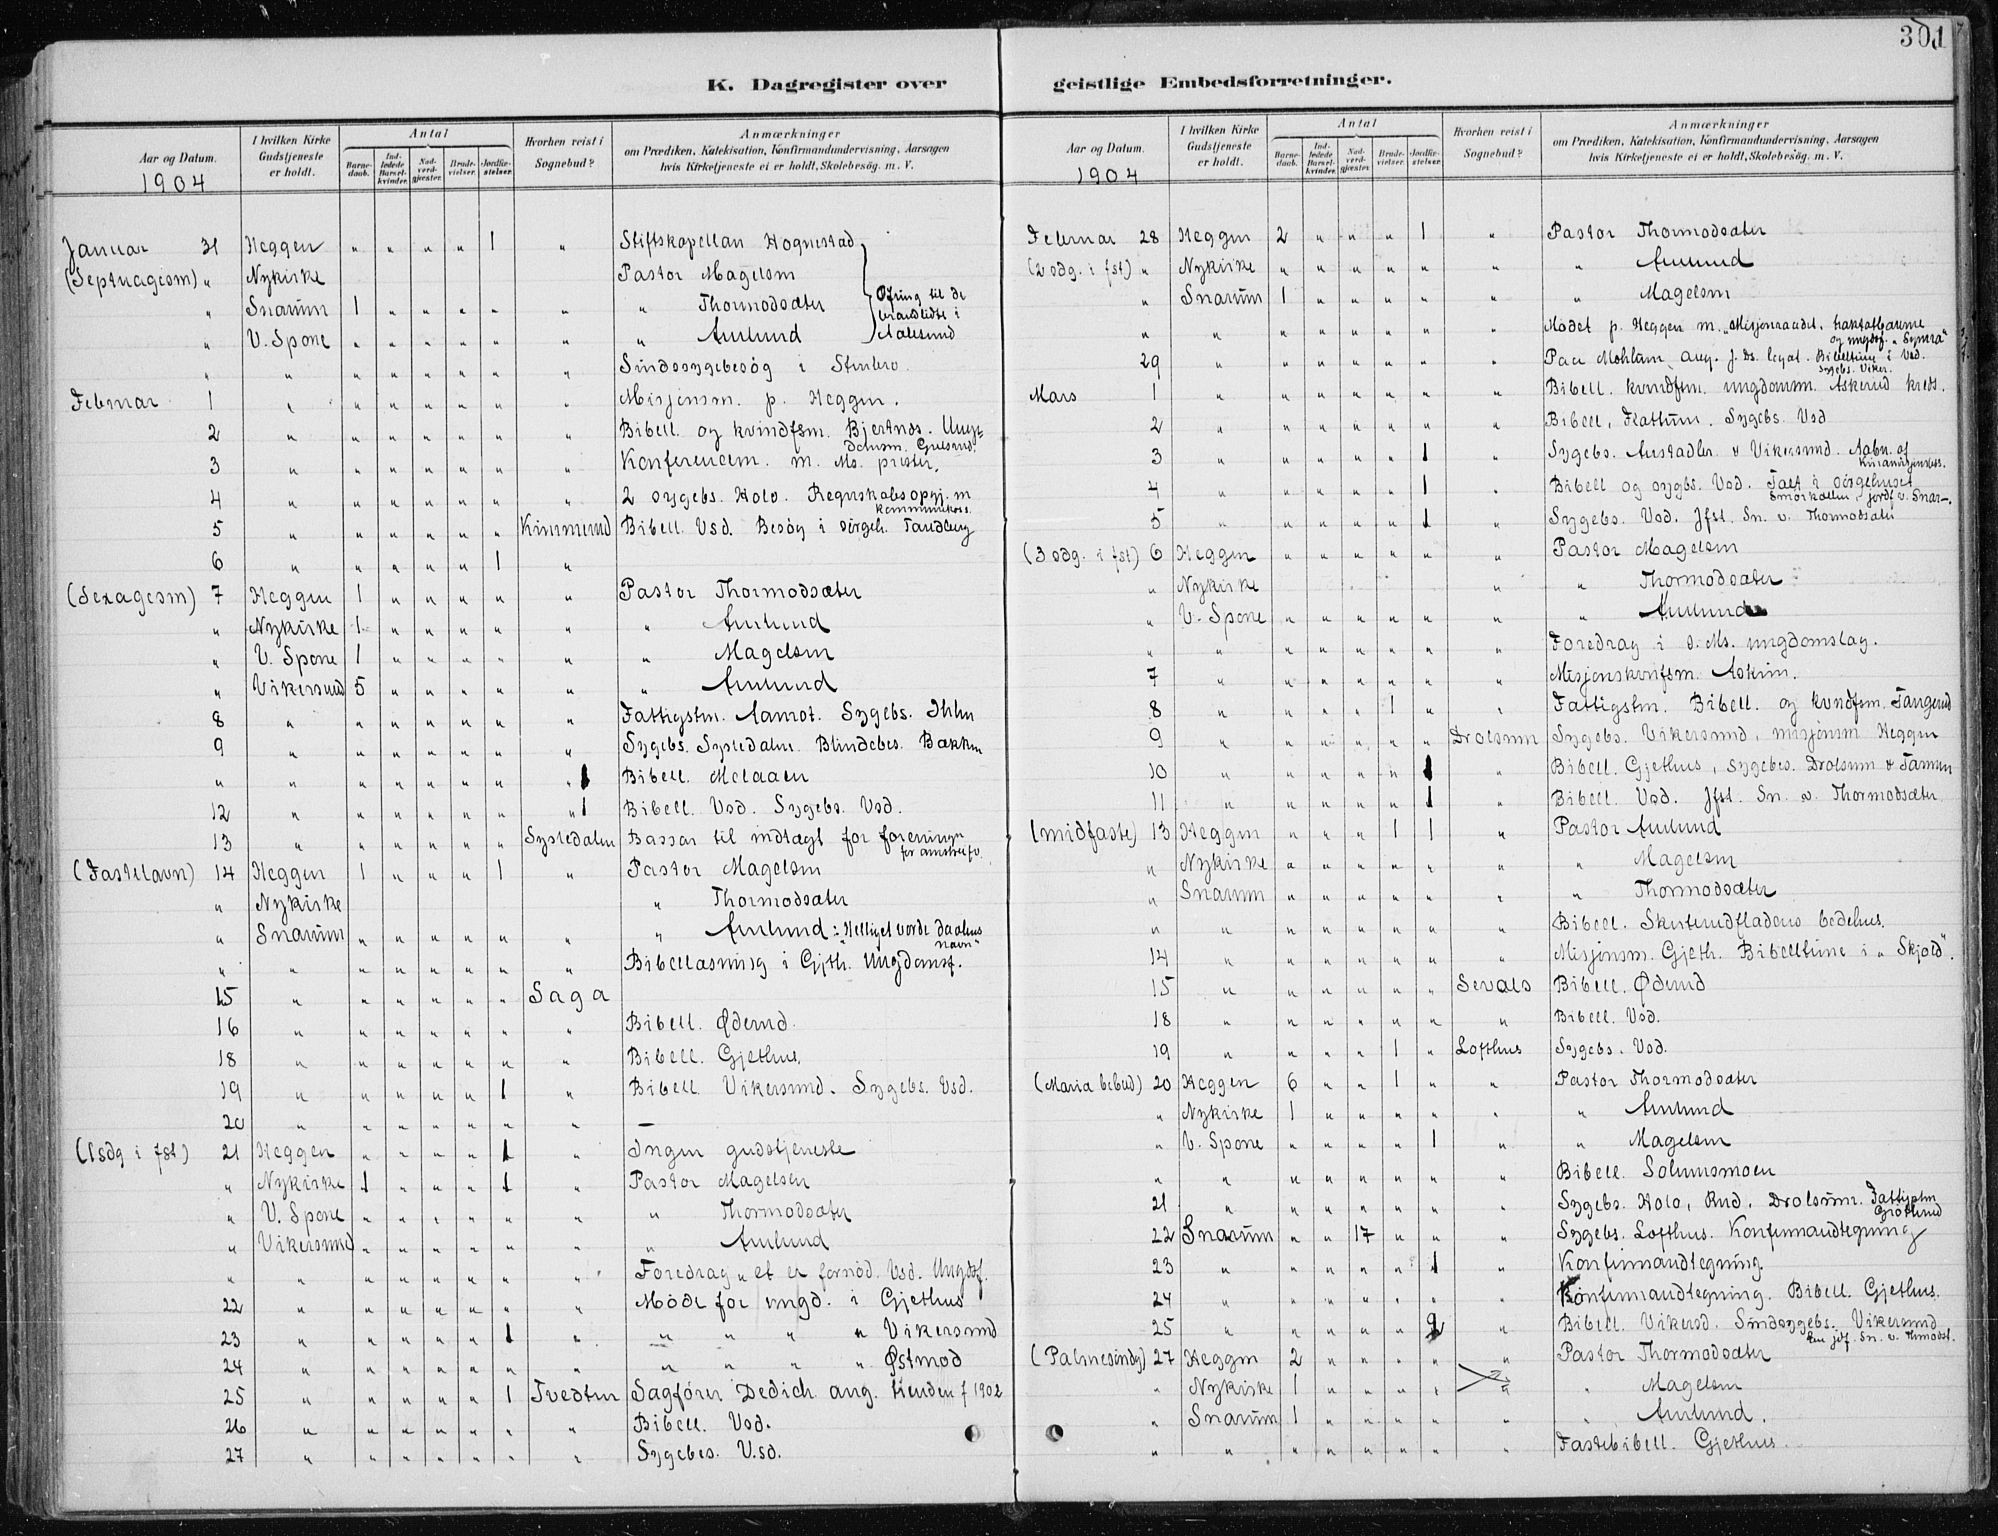 301
K. Dagregister over
geistlige Embedsforretninger.
Aar og Datum. I hvilken Kirke Gudstjeneste er holdt. Antal Barnedaab. Indledede Barselkvinder. Nadverdgjæster. Brudevielser. Jordfæstelser. Hvorhen reist i Sognebud? Anmærkninger om Prædiken, Katekisation, Konfirmandundervisning, Aarsagen hvis Kirketjeneste ei er holdt, Skolebesøg. m. V.
1904
Januar 31 Heggen " " " " 1 " Stiftskapellan Hognestad
(Septuagesm) " Nykirke Pastor Magelsen
" Snarum 1 " " " " " " Thormodsæter Ofring til de brandlidte i Aalesund
" V. Spone " " " " " " " Amlund
" " " " " " " " Sindssygebesøg i Stenbro.
Februar 1 " " " " " " " Misjonsm. p. Heggen.
2 " " " " " " " Bibell. og kvindfsm. Bjertnes. Ungdomsm. Gulsrud.
3 " " " " " " " Konferensem. m. Ms. prester.
4 " " " " " " " 2 sygebs. Holo. Regnskabsopgj. m kommunekass.
5 " " " " " " Kimmerud Bibell. Vsd. Besøg i sörgeh. Tandberg
6 " " " " " 1 "
(Sexagesm) 7 Heggen 1 " " " " " Pastor Thormodsæter
" Nykirke 1 " " " " " " Amlund
" V. Spone 1 " " " " " " Magelsen
" Vikersund 5 " " " " " " Amlund
8 " " " " " " " Fattigstm. Aamot. Sygebs. Ihlen
9 " " " " " " " Sygebs. Systedalen. Blindebes. Bakken
" " " " " " " " 1 Bibell. Melaaen
12 " " " " " " " 1 Bibell. Vsd. Sygebs. Vsd.
13 " " " " " " Systedalen Bassar til indtægt for foreningen
(Fastelavn) 14 Heggen 1 " " " 1 " Pastor Magelsen
" Nykirke " Thormodsæter
" Snarum " " " " " " " Amlund: "Helliget vorde dit navn"
" " " " " " " " Bibellæsning i Gjeth. Ungdomsf.
15 " " " " " " Saga
16 " " " " " " " Bibell. Øderud.
18 " " " " " " " Bibell. Gjethus.
19 " " " " " 1 " Bibell Vikersund. Sygebs. Vsd.
20 " " " " " " " —
(1 sdg i fst) 21 Heggen " " " " 1 " Ingen gudstjeneste
" Nykirke 1 " " " 1 " Pastor Magelsen
" V. Spone " " " " " " " Thormodsæter
" Vikersund " " " " " " " Amlund
" " " " " " " " Foredrag "et er fornöd. Vsd. Ungdsf.
22 " " " " " " " Møde for ungd. i Gjethus
23 " " " " " 1 " " " " " Vikersund
24 " " " " " " " " " " " Østmod
25 " " " " " 1 Tvedten Sagfører Dedich ang. tienden f 1902
26 " " " " " " " Bibell. Vsd.
27 " " " " " " " Sygebes. Vsd.
Aar og Datum. I hvilken Kirke Gudstjeneste er holdt. Antal Barnedaab. Indledede Barselkvinder. Nadverdgjæster. Brudevielser. Jordfæstelser. Hvorhen reist i Sognebud? Anmærkninger om Prædiken, Katekisation, Konfirmandundervisning, Aarsagen hvis Kirketjeneste ei er holdt, Skolebesøg. m. V.
1904
Februar 28 Heggen 2 " " " 1 " Pastor Thormodsæter
(2 sdg. i fst) " Nykirke " " " " " " " Amlund
" Snarum 1 " " " " " " Magelsen
" " " " " " " " Mødet p. Heggen m. "Misjonsraadet, traktatbarnene og ungdsf. "Symra"
29 " " " " " " " Paa Mohlum ang. J. Ds. legat. Bibelltime i Vsd. Sygebs. Viker.
Mars 1 " " " " " " " Bibell. kvindfsm. ungdomm. Askerud kreds.
2 " " " " " " " Bibell. Flattum. Sygebs. Vsd
3 " " " " " 1 " Sygebs. Austadler & Vikersund. Aabn. af
4 " " " " " 1 " Bibell og sygbs. Vsd. Talt i sörgehuset Smörkollen, jordf v. Snar—.
5 " " " " " 1 " Sygebs. Vsd. Jfst. Sn. v. Thormodsæter
(3 sdg. i fst) 6 Heggen " " " " " " Pastor Magelsen
" Nykirke " " Thormodsæter
" V. Spone " " " " " " " Amlund
" " " " " " " " Foredrag i d. Ms. ungdomslag.
7 " " " " " " " Misjonskvifsm. Askim.
8 " " " " 1 " " Fattigstm. Bibell. og kvndfsm. Tangerud
9 " " " " " " Drolsum Sygebs. Vikersund, misjonsm Heggen
10 " " " " " 1 " Bibell. Gjethus, sygebes. Drolsum & Tammen
11 " " " " " 1 " Bibell. Vsd. Jfst. Sn. v. Thormodsæter
(midfaste) 13 Heggen " " " 1 1 " Pastor Amlund
" Nykirke " " " " " " " Magelsen
" Snarum " " " " " " " Thormodsæter
" " " " " " " " Bibell. Skuterudfladens bedehus.
14 " " " " " " " Misjonsm. Gjeth. Bibelltime i "Skjold".
15 " " " " " " Sevals Bibell. Øderud
18 " " " " " " " Bibell. Vsd.
19 " " " " 1 " Lofthus Sygebs. Vsd.
(Maria bebud) 20 Heggen 6 " " 1 " " Pastor Thormodsæter
" Nykirke 1 " " " " " " Amlund
" V. Spone " " " " 1 " " Magelsen
" " " " " " " " Bibell. Solumsmoen
21 " " " " " " " Sygebs. Holo, Rud, Drolsum. Fattigstm
22 Snarum " " 17 " " " Sygebs. Lofthus. Konfirmandtegning
23 " " " " " 1 " Konfirmandtegning.
24 " " " " " " " Konfirmandtegning. Bibell. Gjethus.
25 " " " " " 2 " Bibell. Vikersd. Sindssygebs. Vikersund Een jdf. Sn. v. Thmodst.
(Palmesöndg) 27 Heggen 2 " " " " " Pastor Thormodsæter
" Nykirke 1 " " " " " " Magelsen
" Snarum 1 " " " " " Amlund.
" " " " " " " " Fastebibell. Gjethus.